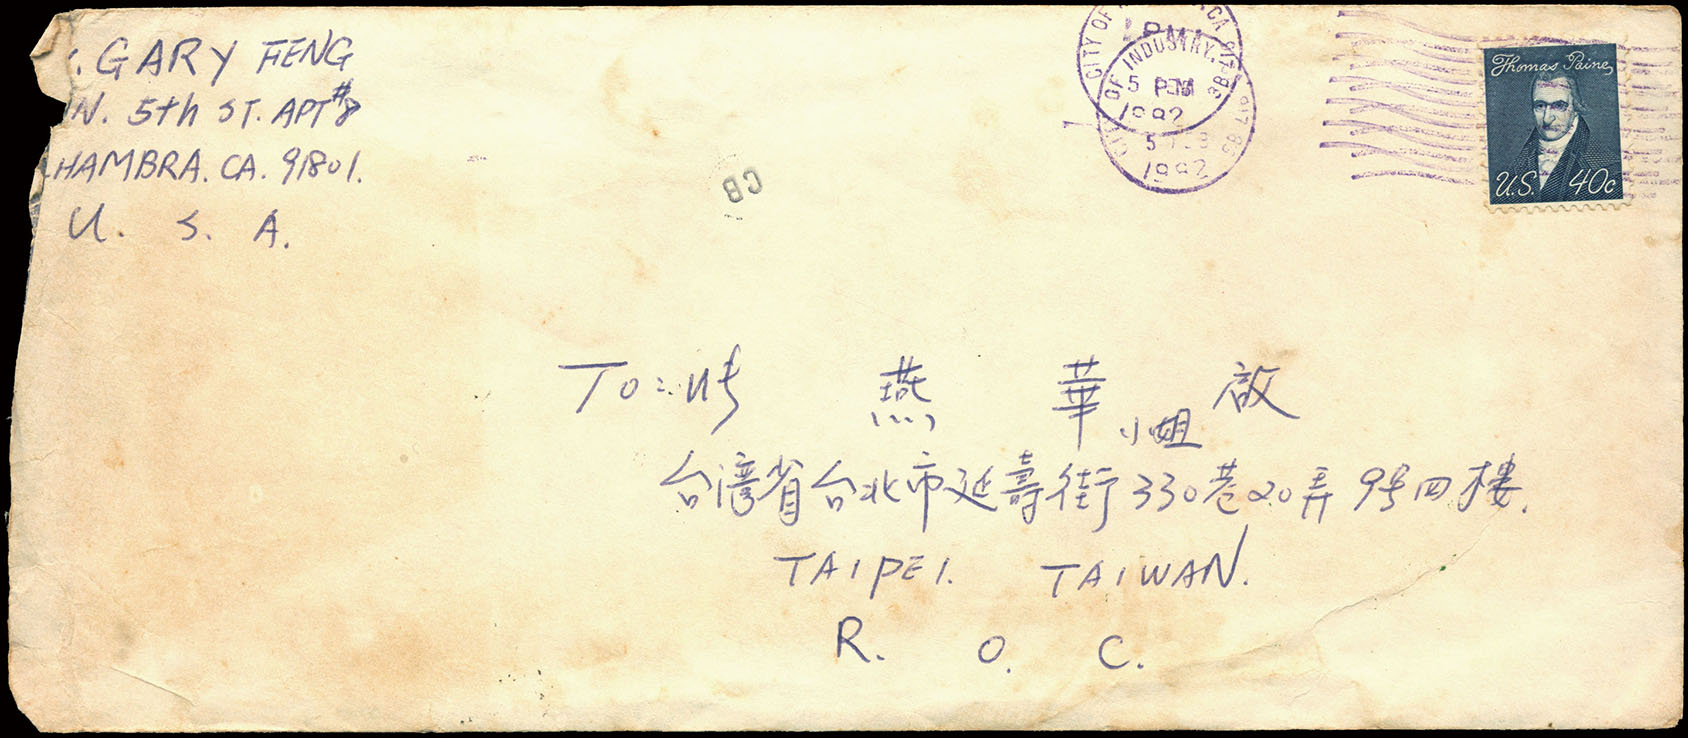 GARY FENG
N. 5th ST. APT #8
HAMBRA. CA. 91801.
U. S. A.
CITY OF INDUSTRY, CA 917
5 PM
1982
5 FEB
1982
Thomas Paine
U.S. 40c
CB
To: 燕 華 小姐 啟
台湾省台北市延壽街330巷20弄9号四樓.
TAIPEI. TAIWAN.
R. O. C.